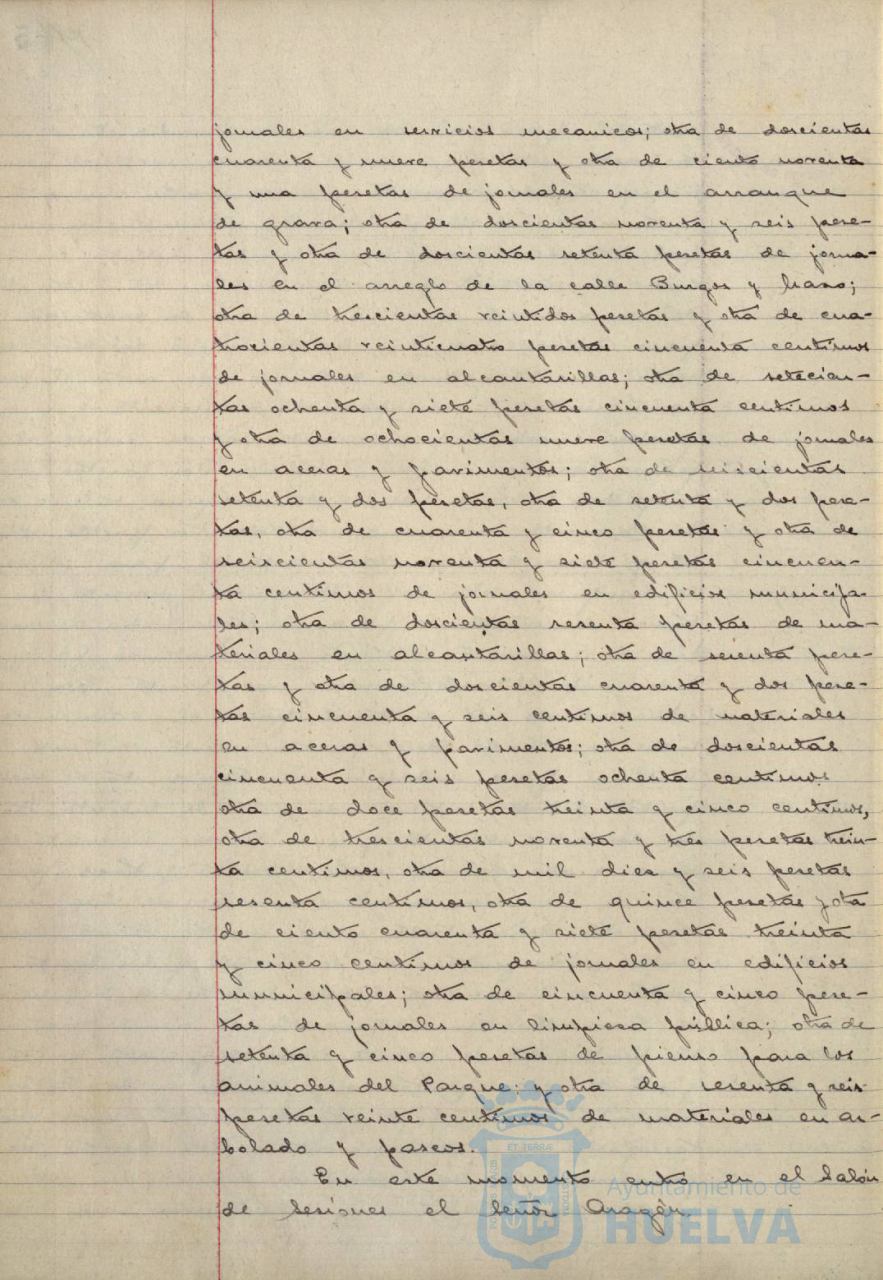 jornales en servicios mecanicos; otra de doscientas
cuarenta y nueve pesetas y otra de ciento noventa
y una pesetas de jornales en el arranque
de grava; otra de doscientas noventa y seis pese-
tas y otra de doscientas setenta pesetas de jorna-
les en el arreglo de la calle Burgos y Mazo;
otra de trescientas veintidos pesetas y otra de cua-
trocientas veinticuatro pesetas cincuenta centimos
de jornales en alcantarillas; otra de setecien-
tas ochenta y siete pesetas cincuenta centimos
y otra de ochocientas nueve pesetas de jornales
en aceras y pavimentos; otra de seiscientas
setenta y dos pesetas, otra de setenta y dos pese-
tas, otra de cuarenta y cinco pesetas y otra de
seiscientas noventa y siete pesetas cincuen-
ta centimos de jornales en edificios municipa-
les; otra de doscientas sesenta pesetas de ma-
teriales en alcantarillas; otra de pese-
tas y otra de doscientas cuarenta y dos pese-
tas cincuenta y seis centimos de materiales
en aceras y pavimentos; otra de doscientas
cincuenta y seis pesetas ochenta centimos
otra de doce pesetas treinta y cinco centimos,
otra de trescientas noventa y tres pesetas trein-
ta centimos, otra de mil diez y seis pesetas
sesenta centimos, otra de quince pesetas y otra
de ciento cuarenta y siete pesetas treinta
y cinco centimos de jornales en edificios
municipales; otra de cincuenta y cinco pese-
tas de jornales en limpieza pública; otra de
setenta y cinco pesetas de pienso para los
animales del Parque; y otra de sesenta y seis
pesetas veinte centimos de materiales en ar-
bolado y paseos.
En este momento entró en el Salón
de sesiones el Señor Aragón.
Ayuntamiento de
HUELVA